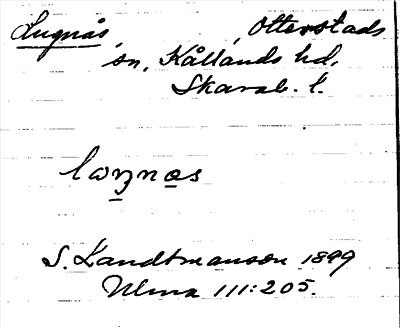 Lugnås, Otterstads
sn, Kållands hd,
Skarab. l.
S. Landtmanson 1899
Ulma 111:205.